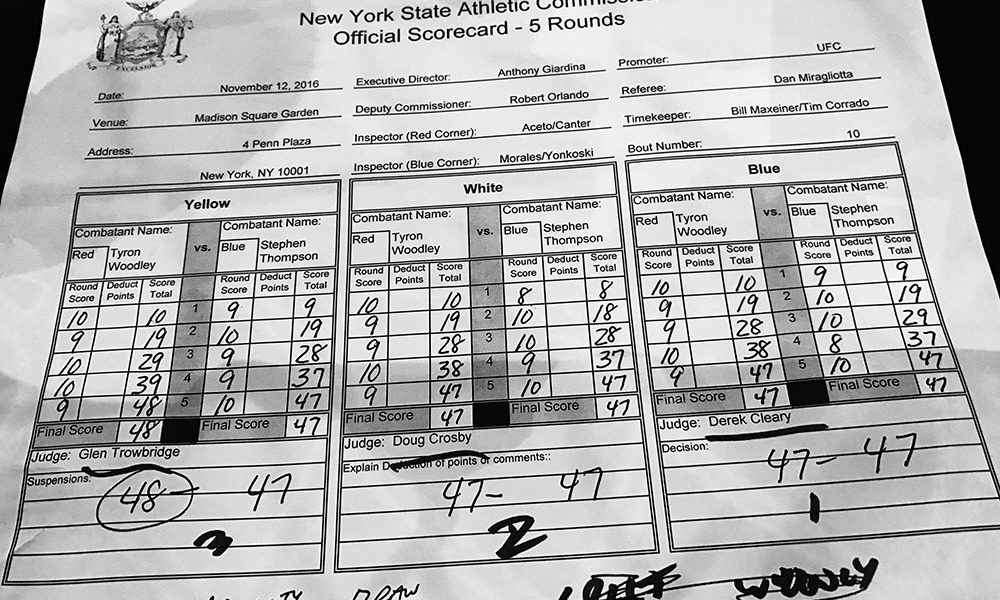 EXCELSIOR
New York State Athletic
Official Scorecard - 5 Rounds
Date: November 12, 2016 Executive Director: Anthony Giardina Promoter: UFC
Venue: Madison Square Garden Deputy Commissioner: Robert Orlando Referee: Dan Miragliotta
Address: 4 Penn Plaza Inspector (Red Corner): Aceto/Canter Timekeeper: Bill Maxeiner/Tim Corrado
New York, NY 10001 Inspector (Blue Corner): Morales/Yonkoski Bout Number: 10
Yellow
Combatant Name: vs. Combatant Name:
Red Tyron Blue Stephen
Woodley Thompson
Round Deduct Score Round Deduct Score
Score Points Total Score Points Total
10 10 1 9 9
9 19 2 10 19
10 29 3 9 28
10 39 4 9 37
9 48 5 10 47
Final Score 48 Final Score 47
Judge: Glen Trowbridge
Suspensions:
48 - 47
3
White
Combatant Name: vs. Combatant Name:
Red Tyron Blue Stephen
Woodley Thompson
Round Deduct Score Round Deduct Score
Score Points Total Score Points Total
10 10 1 8 8
9 19 2 10 18
9 28 3 10 28
10 38 4 9 37
9 47 5 10 47
Final Score 47 Final Score 47
Judge: Doug Crosby
Explain Deduction of points or comments::
47 - 47
2
Blue
Combatant Name: vs. Combatant Name:
Red Tyron Blue Stephen
Woodley Thompson
Round Deduct Score Round Deduct Score
Score Points Total Score Points Total
10 10 1 9 9
9 19 2 10 19
9 28 3 10 29
10 38 4 8 37
9 47 5 10 47
Final Score 47 Final Score 47
Judge: Derek Cleary
Decision:
47 - 47
1
DRAW WOODLEY